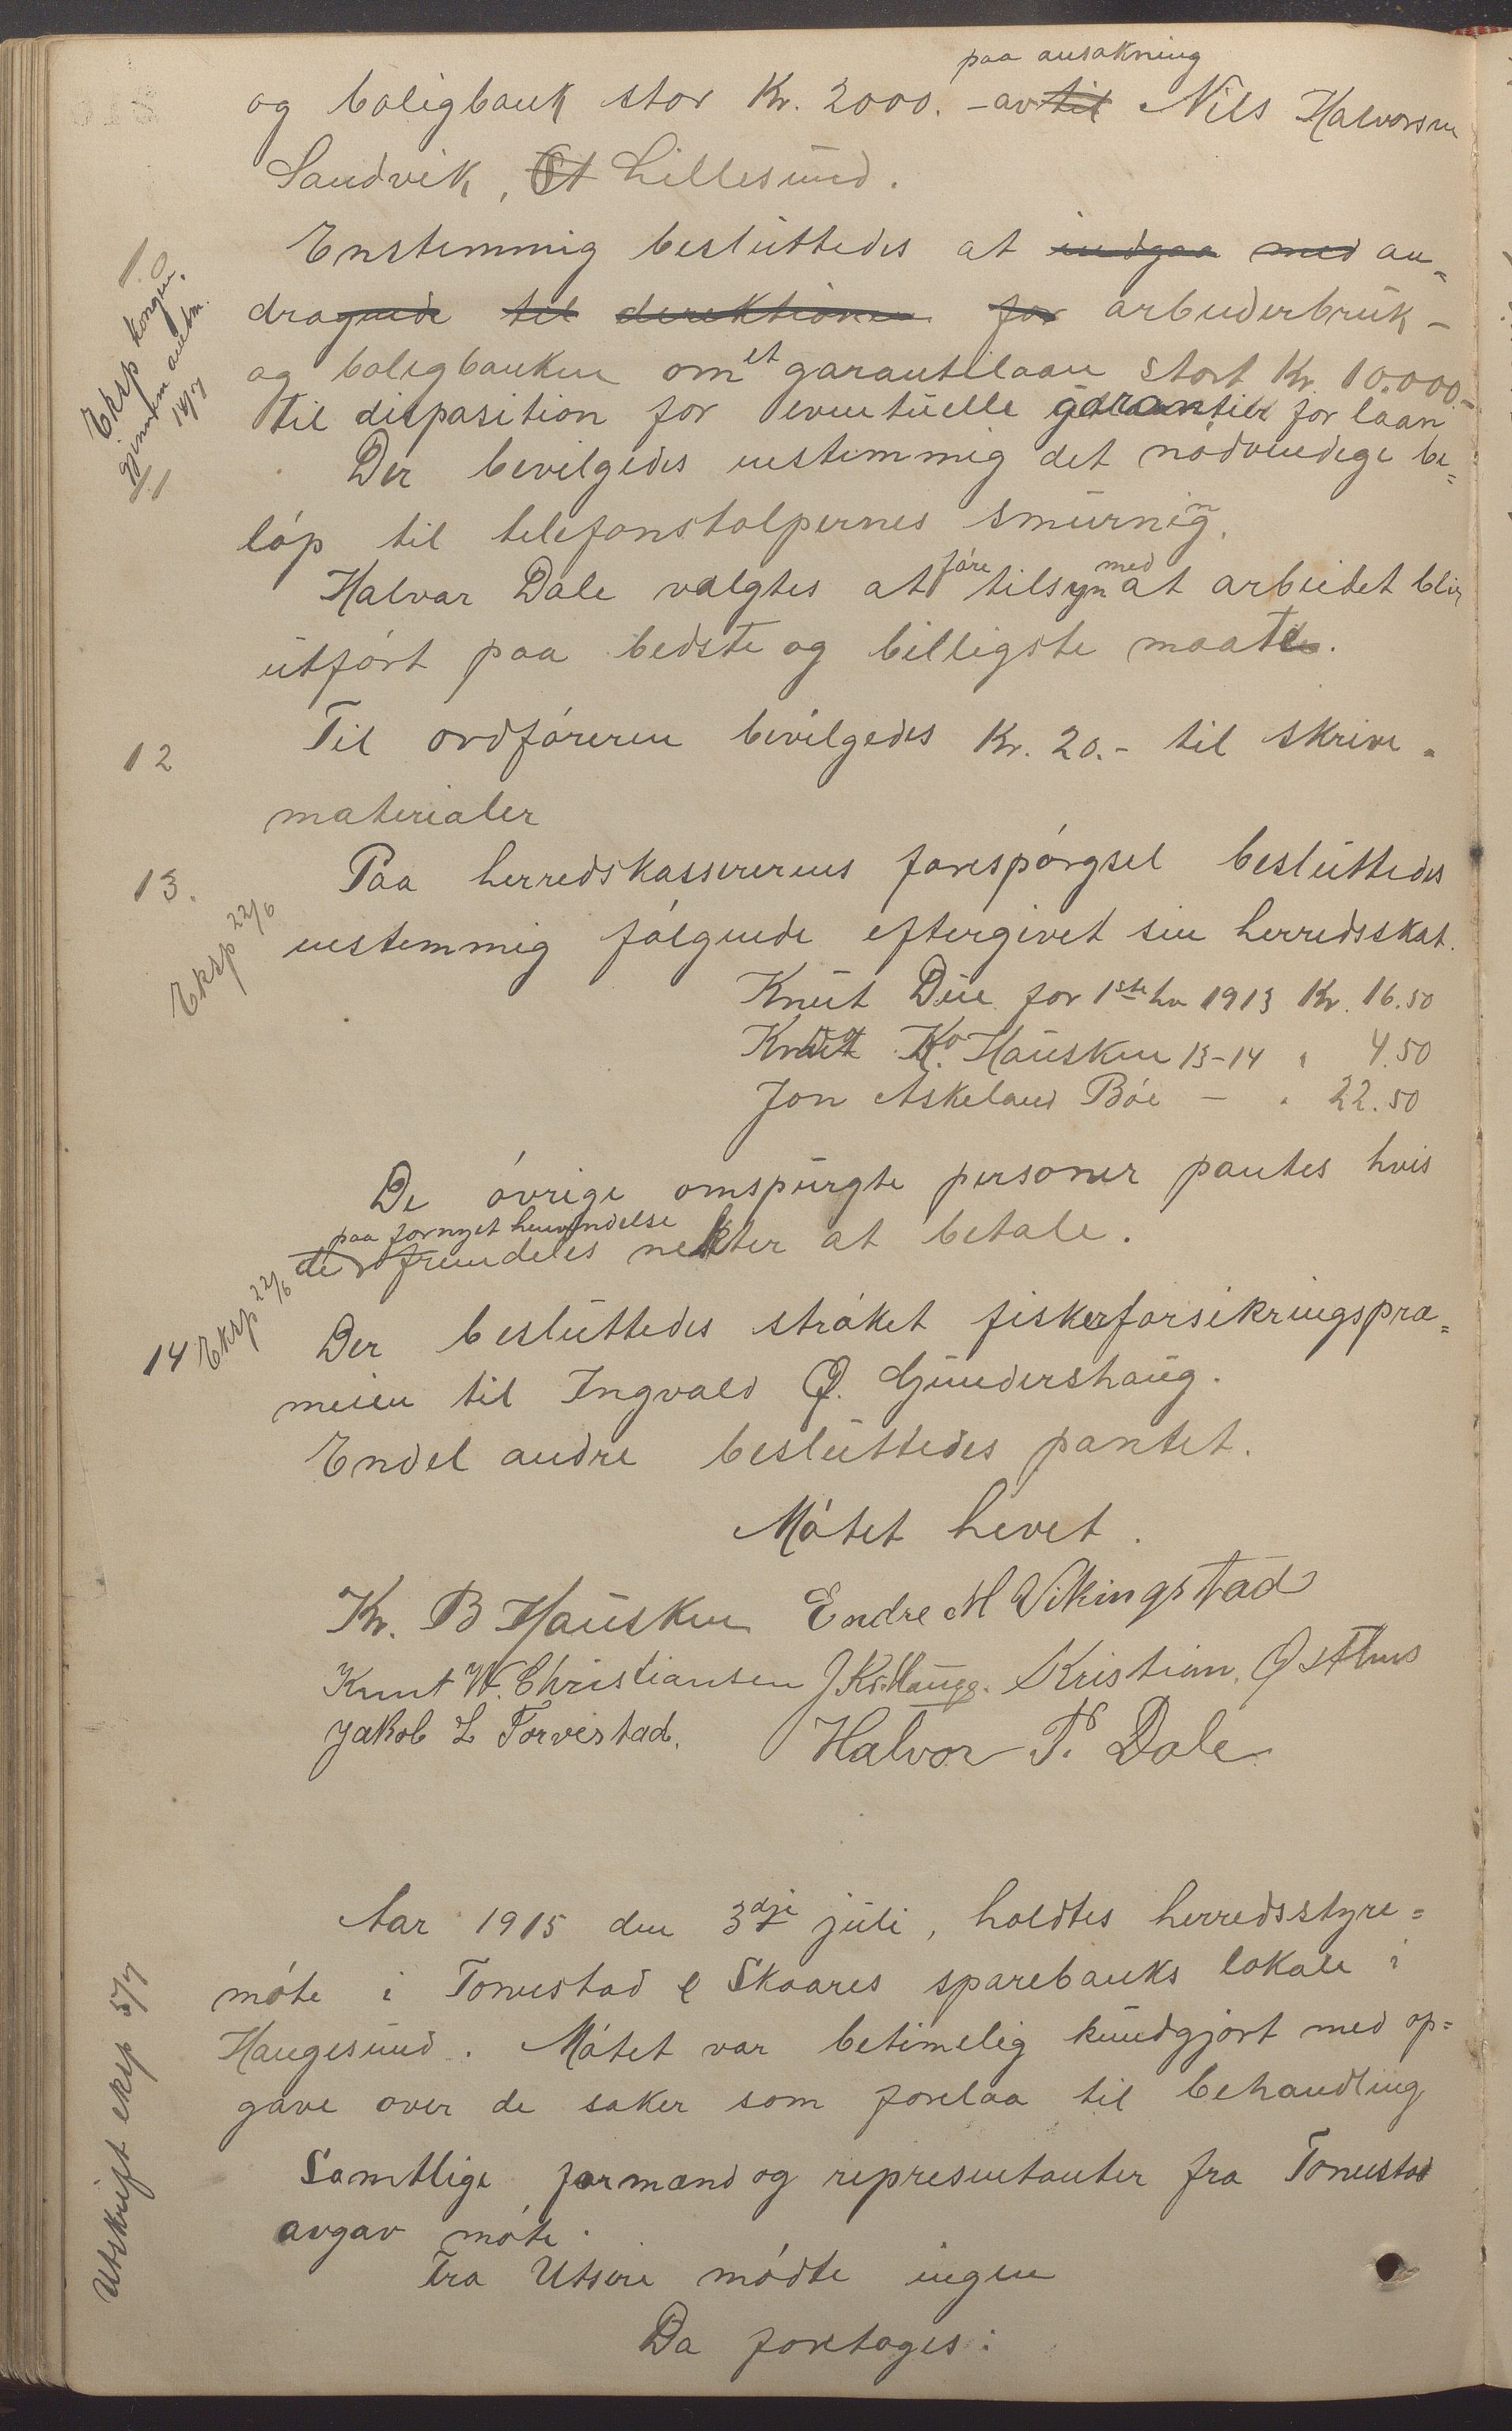 paa ansøkning
og boligbank stor Kr. 2000. - av til Nils Halvorsen
Sandvik, St Lillesund.
10 Enstemmig besluttedes at indgaa med an=
dragende til direktionen for arbeiderbruk-
og boligbanken om et garantilaan stort Kr. 10.000.-
til disposition for eventuelle garantier for laan
11 Der bevilgedes enstemmig det nødvendige be=
løp til telefonstolpernes smurning.
Halvar Dale valgtes at føre tilsyn med at arbeidet blir
utført paa bedste og billigste maate.
12 Til ordføreren bevilgedes Kr. 20.- til skrive=
materialer
13. Paa herredskassererens forespørgsel besluttedes
Eksp 22/6
enstemmig følgende eftergivet sin herredsskat.
Knut Due for 1ste hv 1913 Kr. 16.50
Knut K. Hausken 13-14 " 4.50
Jon Askeland Bøe - " 22.50
De øvrige omspurgte personer pantes hvis
paa fornyet henvendelse
de fremdeles nekter at betale.
14 Eksp 22/6 Der besluttedes strøket fiskerforsikringspræ=
mien til Ingvald O. Gjundershaug.
Endel andre besluttedes pantet.
Møtet hevet.
Kr. B Hausken Endre M Vikingstad
Knut W. Christiansen J. Kr. Haugg. Kristian Østhus
Jakob L Torvestad. Halvor T. Dale
Aar 1915 den 3dje juli, holdtes herredsstyre=
møte i Torvestad & Skaares sparebanks lokale i
Haugesund. Møtet var betimelig kundgjort med op=
gave over de saker som forelaa til behandling
Utskrift eksp 5/7
Samtlige formænd og representanter fra Torvestad
avgav møte.
Fra Utsire mødte ingen
Da foretoges: